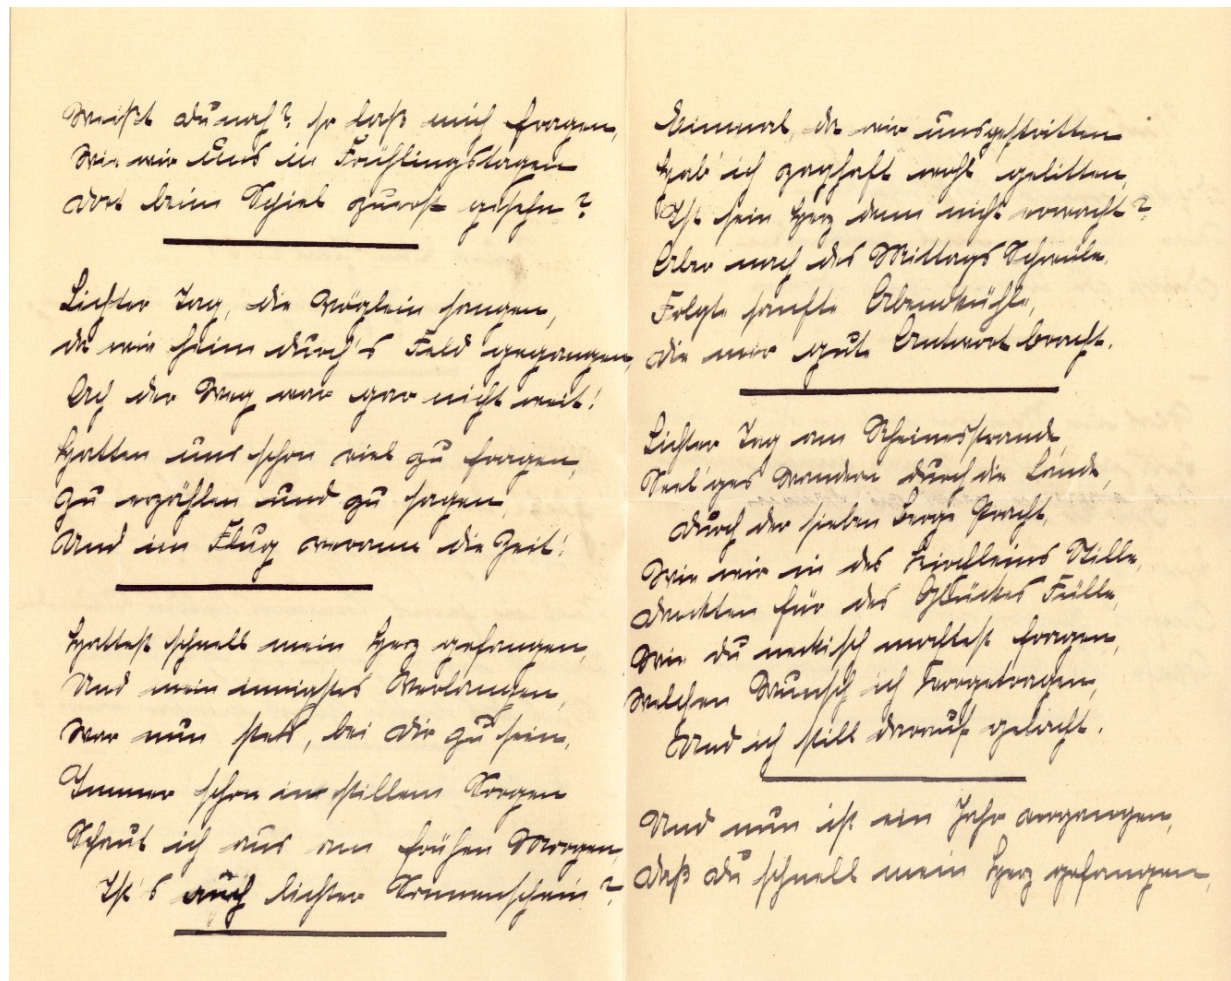 Weißt du noch? so laß mich fragen,
Wie wir uns in Frühlingstagen
dort beim Spiel zuerst gesehn?
Lichter Tag, die Vöglein sangen,
da wir heim durch's Feld gegangen,
Ach der Weg war gar nicht weit!
Hatten uns schon viel zu fragen,
Zu erzählen und zu sagen,
Und im Flug verrann die Zeit!
Hattest schnell mein Herz gefangen,
Und mein innigstes Verlangen,
War nun stets, bei dir zu sein,
Immer schon in stillem Sorgen
Schaut ich aus am frühen Morgen,
Ist's auch lichter Sonnenschein?
Einmal, da wir uns gestritten
Hab' ich zaghaft wohl gelitten,
Ist sein Herz denn nicht erwacht?
Aber nach des Mittags Schwüle,
Folgte sanfte Abendkühle,
die mir gute Antwort bracht.
Lichter Tag am Rheinesstrande,
Seel'ges Wandern durch die Lande,
durch der sieben Berge Pracht,
Wie wir in des Kirchleins Stille,
dankten für des Glückes Fülle,
Wie du neckisch wolltest fragen,
Welchen Wunsch ich vorgetragen,
Und ich still darauf gelacht.
Und nun ist ein Jahr vergangen,
daß du schnell mein Herz gefangen,